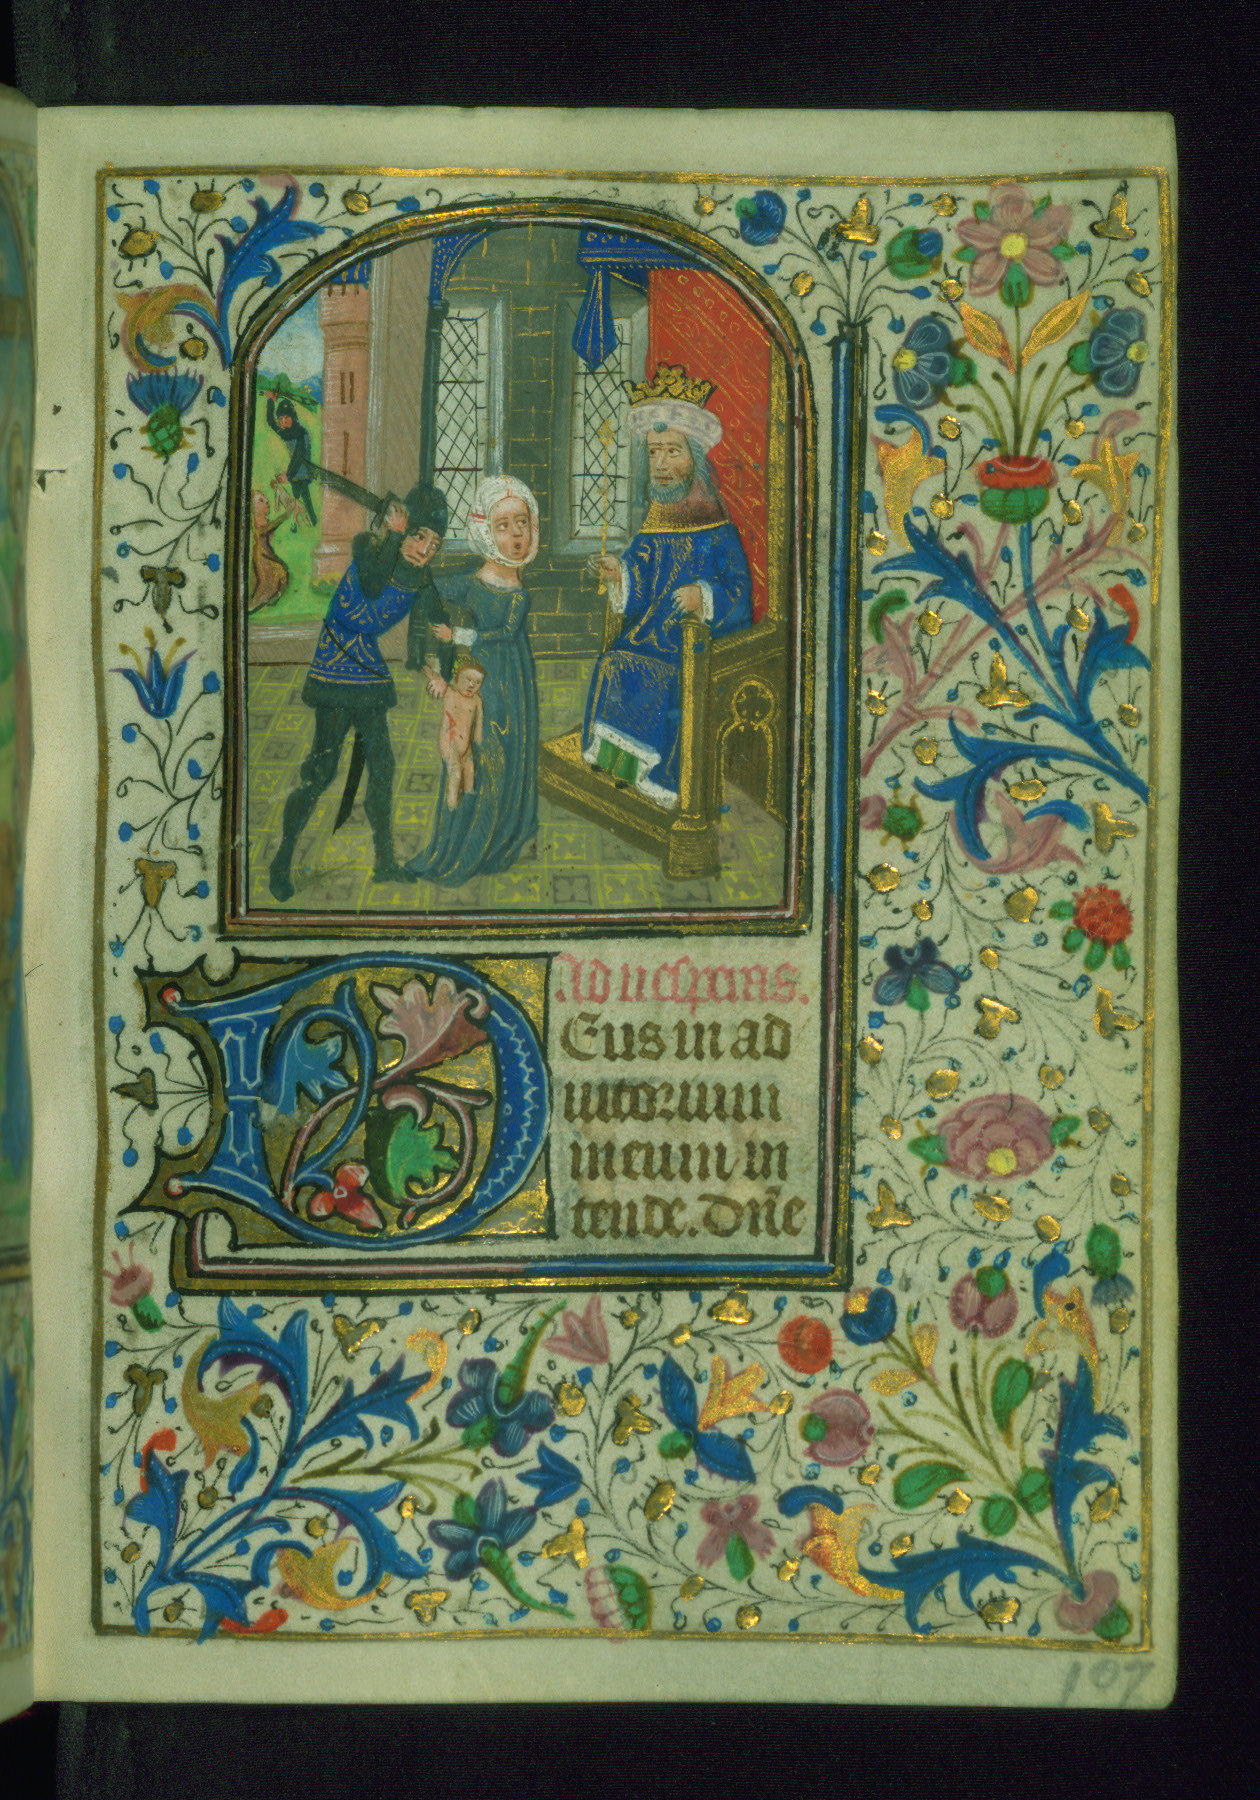 Ad uesperas.
Deus in ad
iutorium
meum in
tende. Dn̄e
107